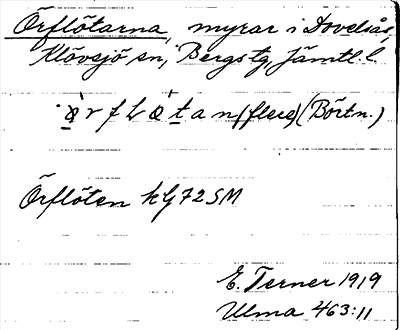 Örflötarna, myrar i Dovelsås,
Klövsjö sn, Bergs tg, Jämtl. l.
(flere) (Börtn.)
Örflöten kG 72 SM
E. Terner 1919
Ulma 463:11